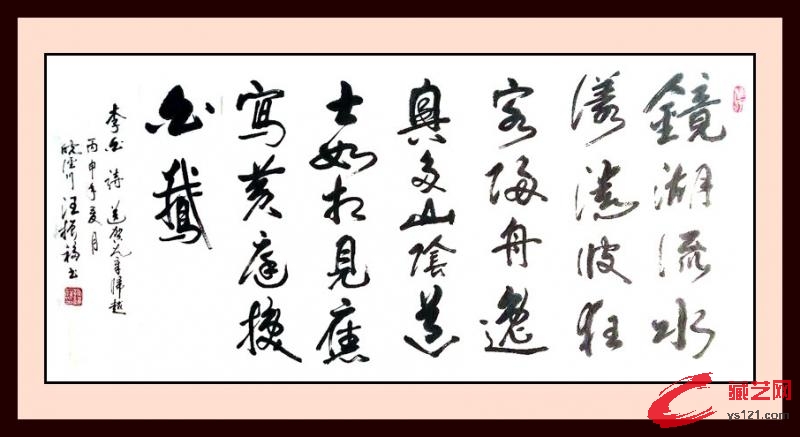 鏡湖流水
漾清波狂
客歸舟逸
興多山陰道
士如相見應
寫黄庭換
白鵝
李白诗 送賀知章歸越
丙申年夏月
汪振福书
藏艺网
ys121.com